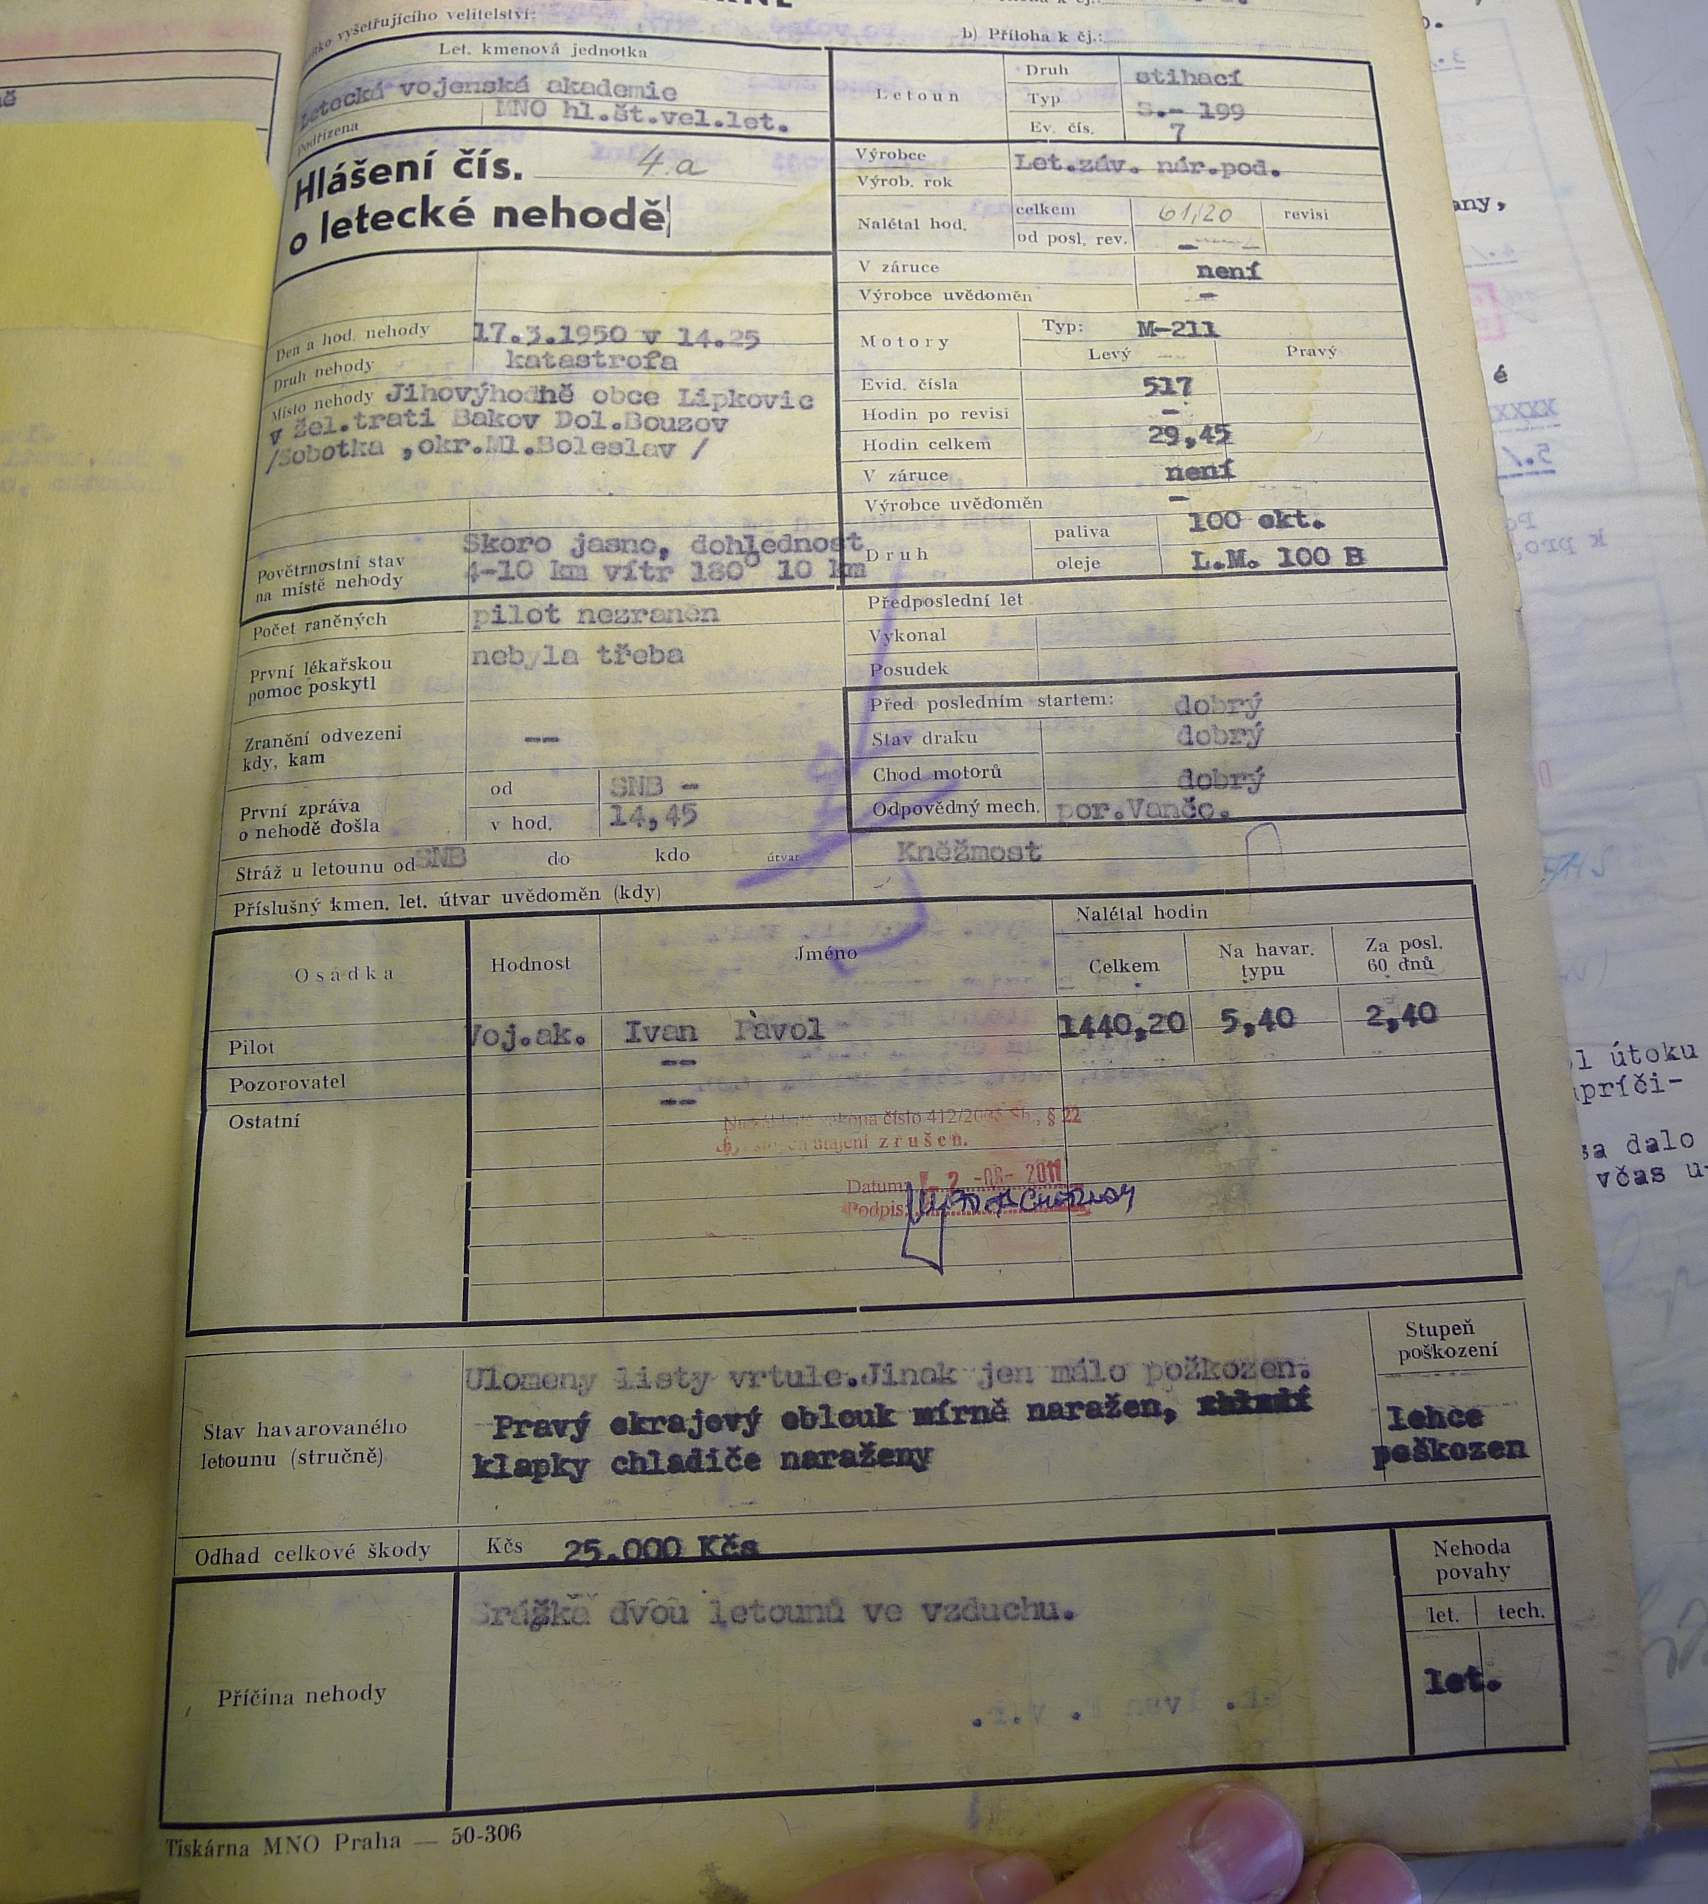 vyšetřujícího velitelství:
b) Příloha k čj.:
Let. kmenová jednotka
Letecká vojenská akademie
Podřízena MNO hl.št.vel.let.
Hlášení čís. 4.a
o letecké nehodě
Letoun
Druh stihací
Typ S.- 199
Ev. čís. 7
Výrobce Let.záv. nár.pod.
Výrob. rok
Nalétal hod. celkem 61,20 revisi
od posl. rev. -
V záruce není
Výrobce uvědoměn -
Motory Typ: M-211
Levý Pravý
Evid. čísla 517
Hodin po revisi -
Hodin celkem 29,45
V záruce není
Výrobce uvědoměn -
Druh paliva 100 okt.
oleje L.M. 100 B
Den a hod. nehody 17.3.1950 v 14.25
Druh nehody katastrofa
Místo nehody Jihovýhodně obce Lipkovic
v žel.trati Bakov Dol.Bouzov
/Sobotka ,okr.Ml.Boleslav /
Povětrnostní stav
na místě nehody
Skoro jasno, dohlednost
4-10 km vítr 180° 10 km
Počet raněných pilot nezraněn
První lékařskou
pomoc poskytl
nebyla třeba
Zranění odvezeni
kdy, kam
--
První zpráva
o nehodě došla
od SNB -
v hod. 14,45
Stráž u letounu od SNB do kdo útvar Kněžmost
Příslušný kmen. let. útvar uvědoměn (kdy)
Předposlední let
Vykonal
Posudek
Před posledním startem: dobrý
Stav draku dobrý
Chod motorů dobrý
Odpovědný mech. por.Vančo.
Osádka Hodnost Jméno Nalétal hodin
Celkem
Na havar.
typu
Za posl.
60 dnů
Pilot Voj.ak. Ivan Pavol 1440,20 5,40 2,40
Pozorovatel --
Ostatní --
zákona číslo 412/2005 Sb., § 22
utajení zrušen.
Datum: 2 -08- 2011
Podpis:
Stav havarovaného
letounu (stručně)
Ulomeny listy vrtule.Jinak jen málo požkozen.
Pravý okrajový oblouk mírně naražen,
klapky chladiče naraženy
Stupeň
poškození
lehce
poškozen
Odhad celkové škody Kčs 25.000 Kčs
Příčina nehody
Srážka dvou letounů ve vzduchu.
Nehoda
povahy
let. tech.
let.
Tiskárna MNO Praha — 50-306
any,
é
útoku
príči-
sa dalo
včas